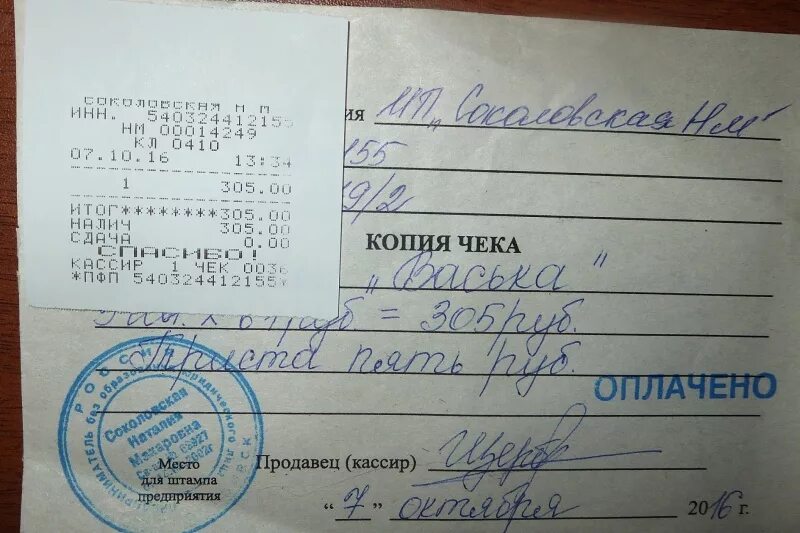 СОКОЛОВСКАЯ Н М
ИНН. 540324412155
НМ 00014249
КЛ 0410
07.10.16 13:34
1 305.00
ИТОГ********305.00
НАЛИЧ 305.00
СДАЧА 0.00
СПАСИБО!
КАССИР 1 ЧЕК 0036
*ПФП 540324412155*
ия ИП „Соколовская НМ"
155
19/2
КОПИЯ ЧЕКА
„Васька"
= 305 руб.
Триста пять руб.
ОПЛАЧЕНО
РОССИЯ
Соколовская
Наталия
Макаровна
Место
для штампа
предприятия
Продавец (кассир)
"7" октября 2016 г